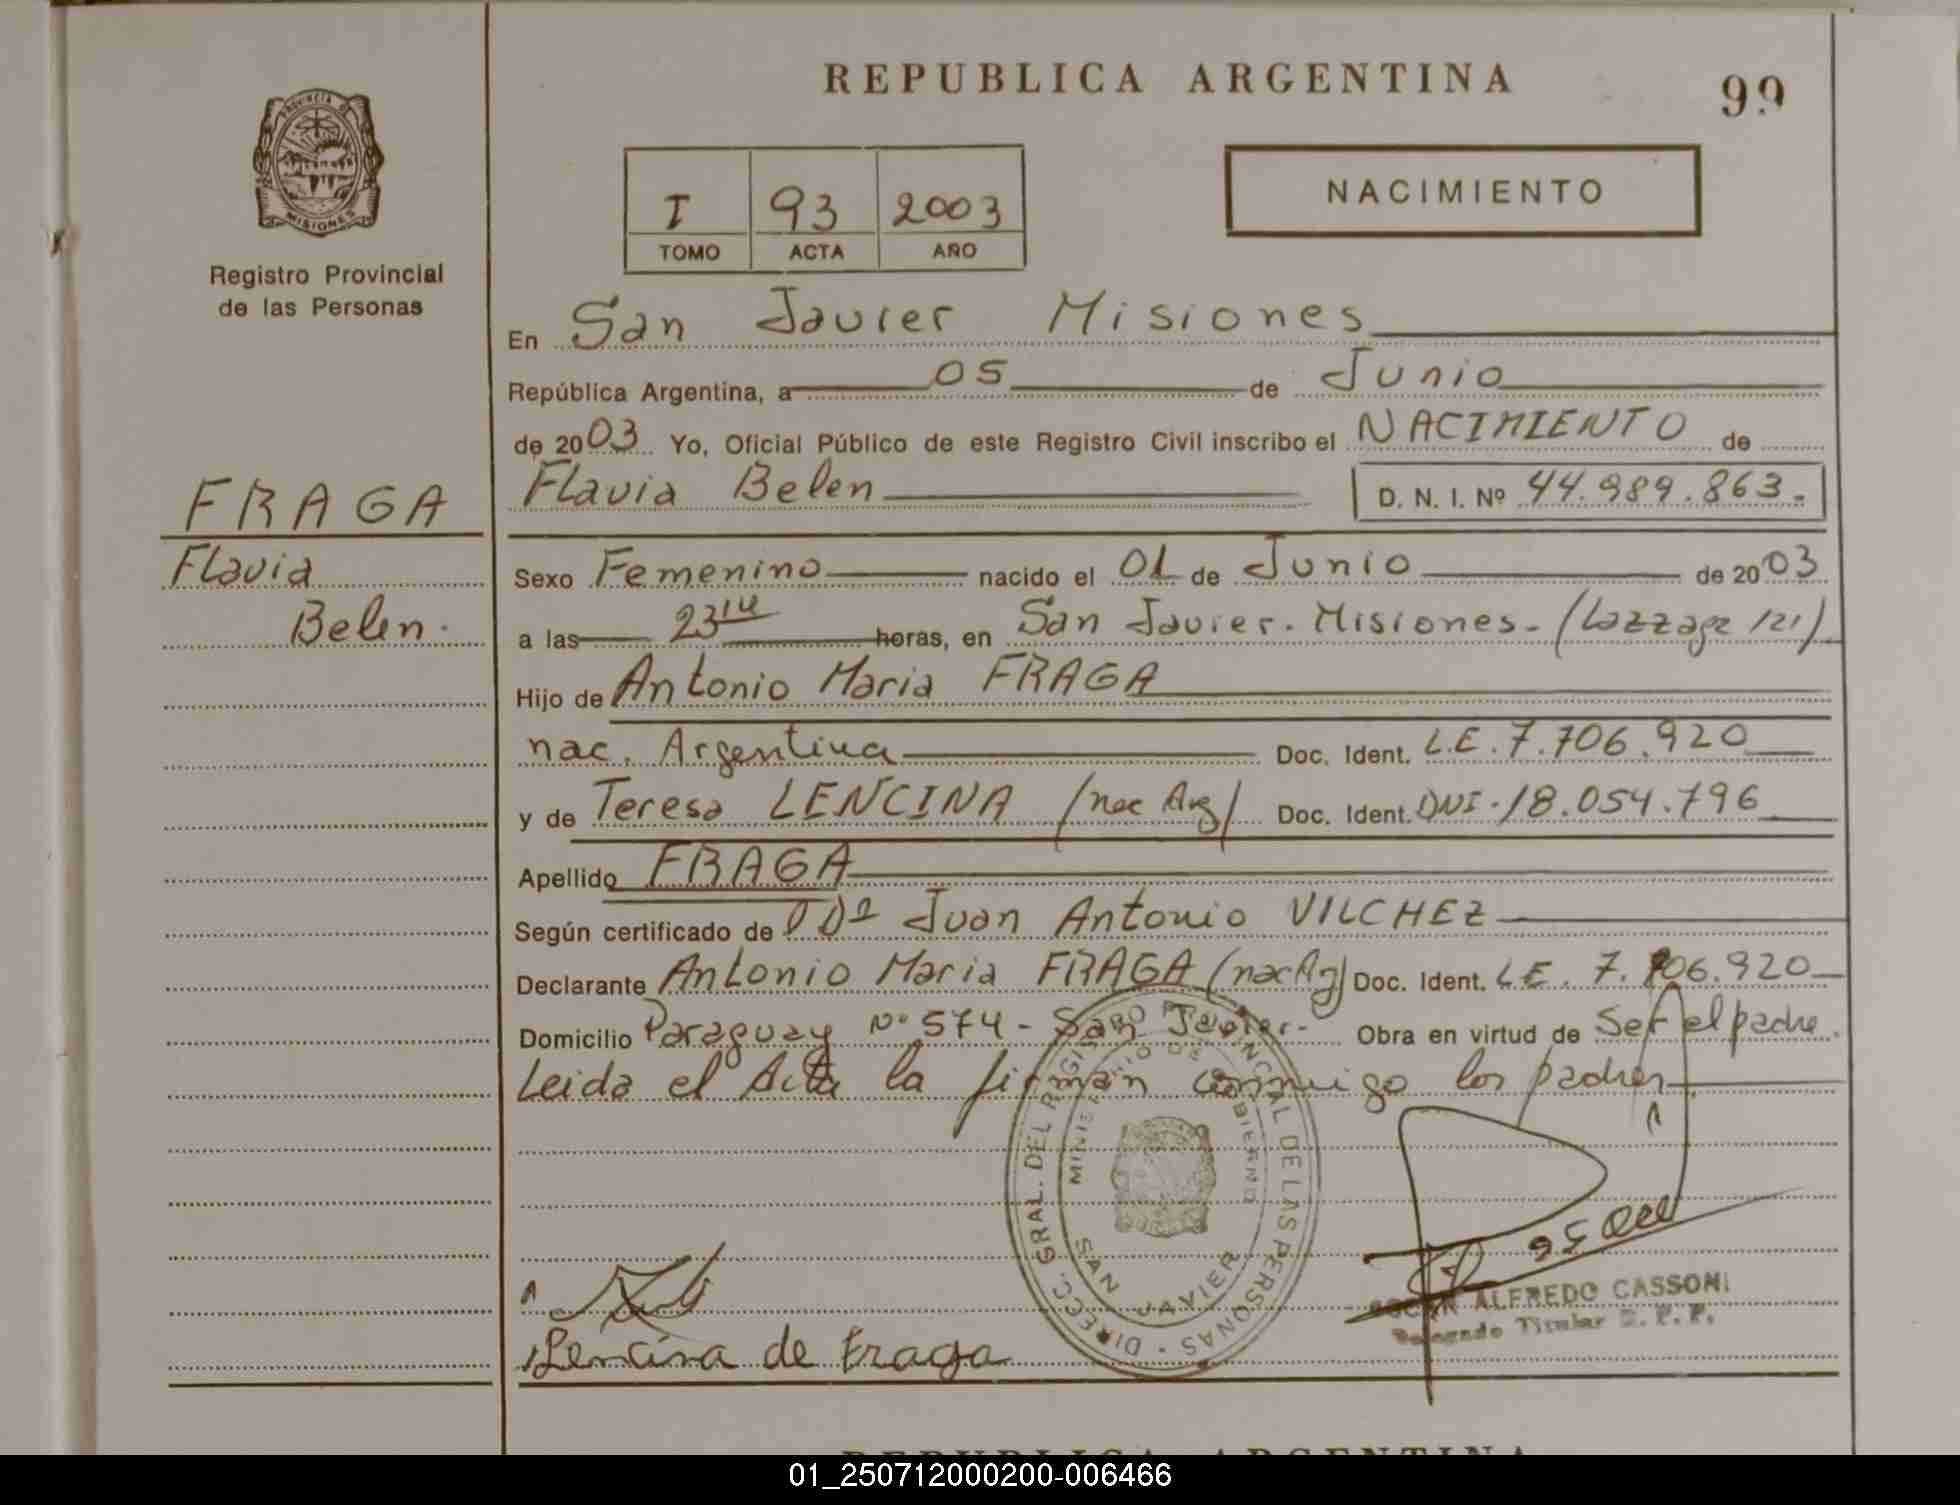 REPUBLICA ARGENTINA
99
PROVINCIA DE
MISIONES
Registro Provincial
de las Personas
I 93 2003
TOMO ACTA AÑO
NACIMIENTO
En San Javier Misiones
República Argentina, a 05 de Junio
de 2003 Yo, Oficial Público de este Registro Civil inscribo el NACIMIENTO de
Flavia Belen D. N. I. Nº 44.989.863.-
FRAGA
Flavia
Belen.
Sexo Femenino nacido el 01 de Junio de 2003
a las 23 horas, en San Javier. Misiones. (121)
Hijo de Antonio Maria FRAGA
nac. Argentina Doc. Ident. L.E. 7.706.920
y de Teresa LENCINA (nac Arg) Doc. Ident. DNI. 18.054.796
Apellido FRAGA
Según certificado de Juan Antonio VILCHEZ
Declarante Antonio Maria FRAGA (nac Arg) Doc. Ident. L.E. 7.706.920
Domicilio Paraguay Nº 574 - San Javier.- Obra en virtud de Ser el padre.
Leida el Acta la firman conmigo los padres
DIRECC. GRAL. DEL REGISTRO PROVINCIAL DE LAS PERSONAS
MINISTERIO DE GOBIERNO
SAN JAVIER
OSCAR ALFREDO CASSONI
Delegado Titular R. P. P.
Lencina de Fraga
REPUBLICA ARGENTINA
01_250712000200-006466